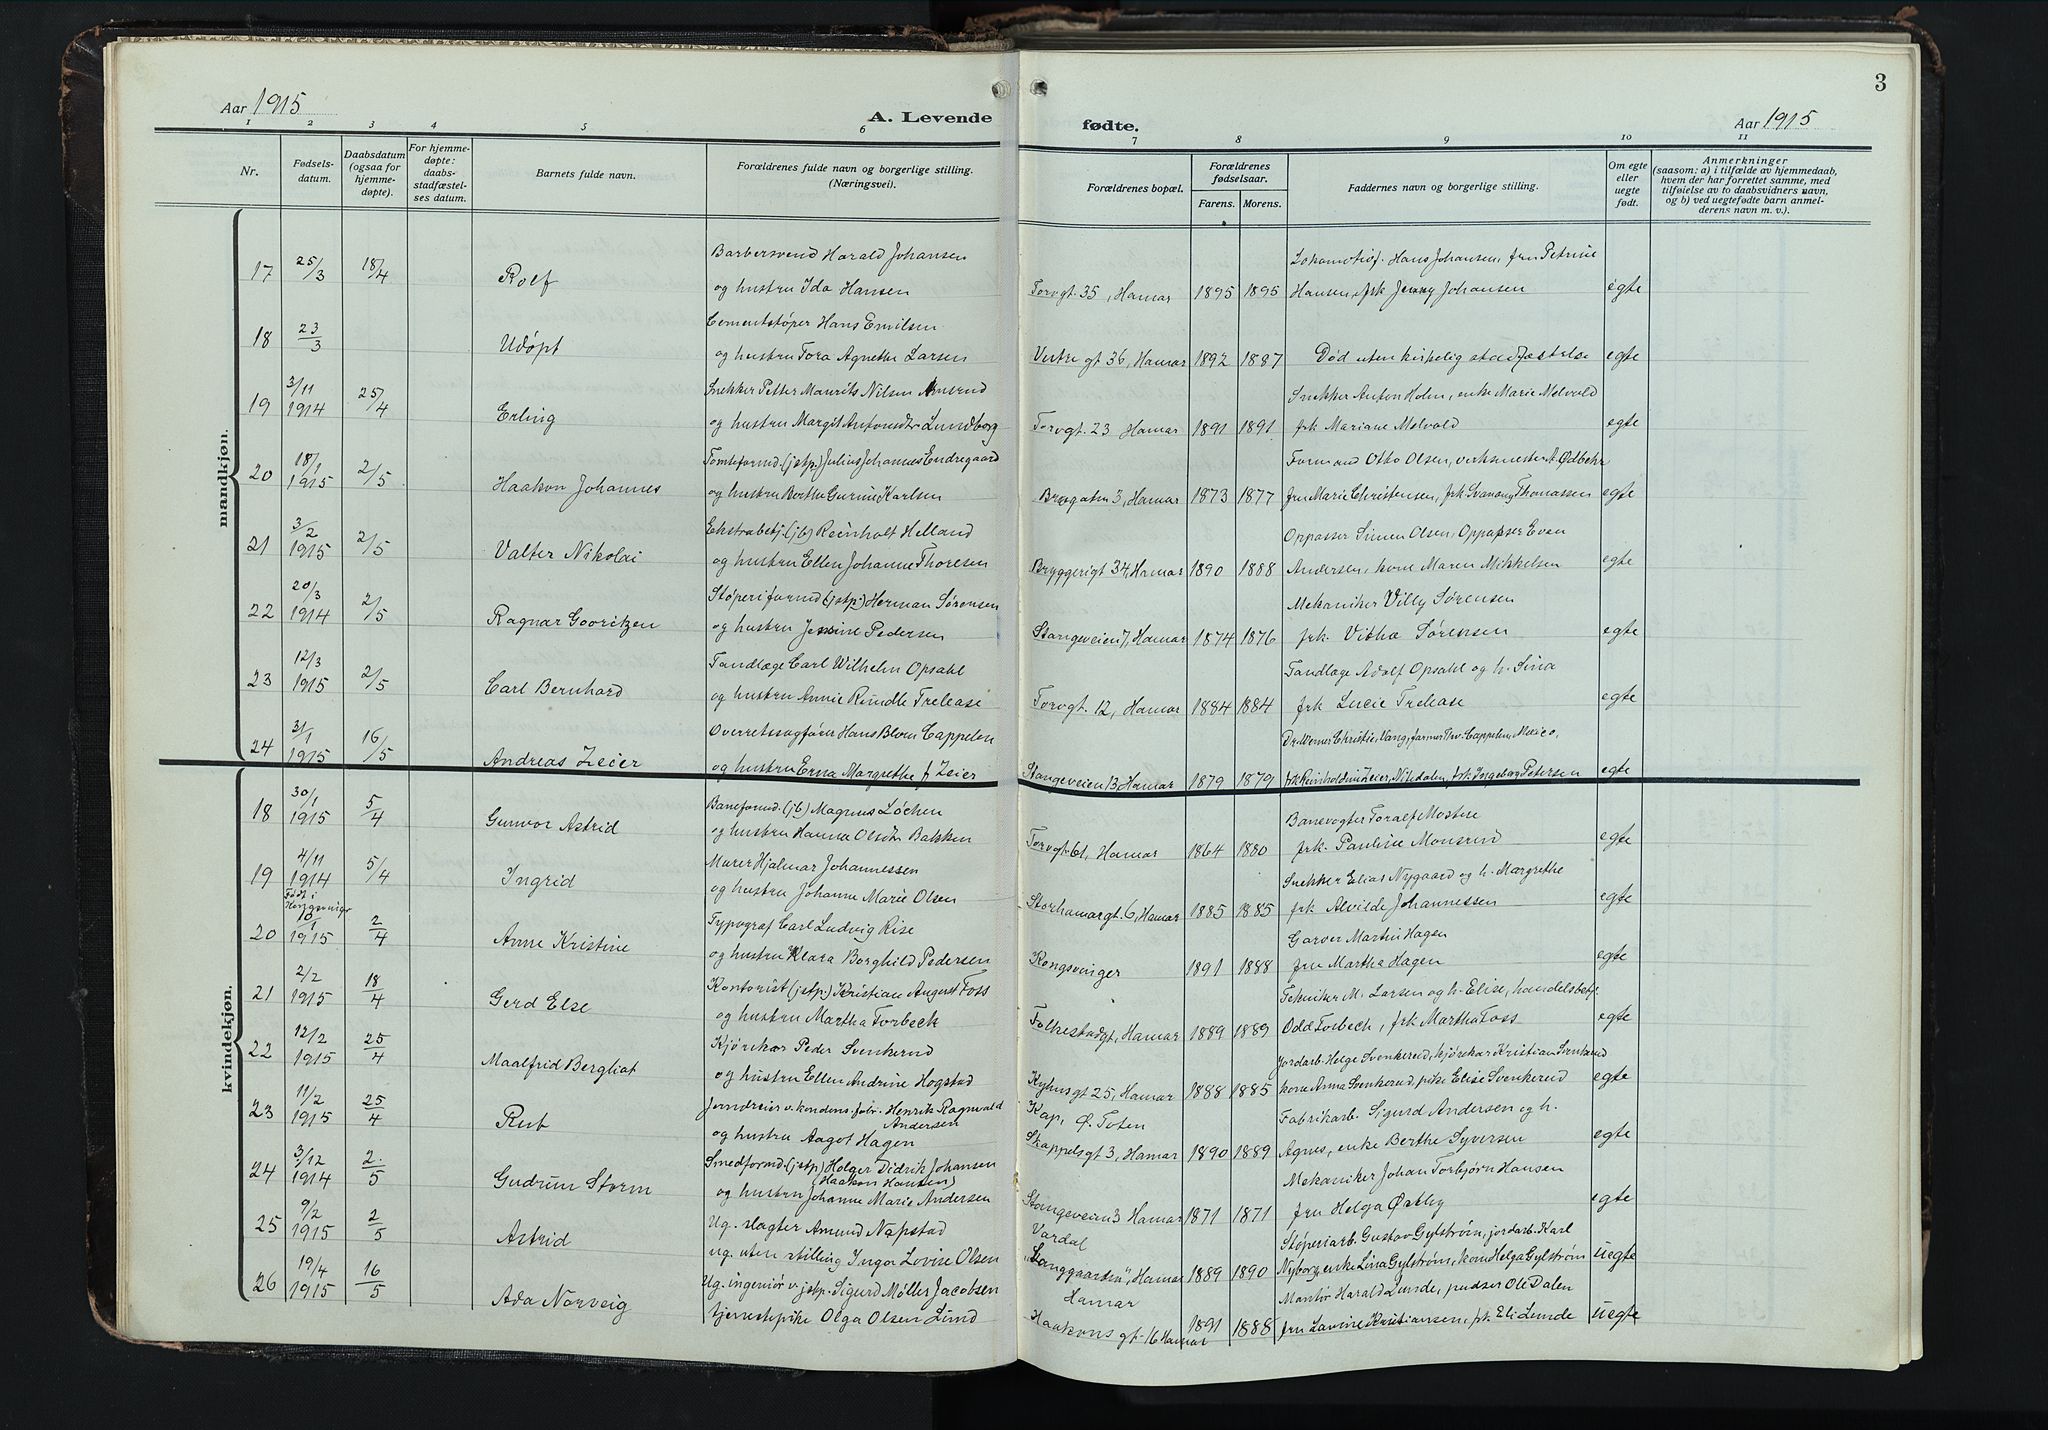 3
Aar 1915
A. Levende fødte.
Aar 1915
1 2 3 4 5 6 7 8 9 10 11
Nr.
Fødsels-
datum.
Daabsdatum
(ogsaa for
hjemme-
døpte).
For hjemme-
døpte:
daabs-
stadfæstel-
ses datum.
Barnets fulde navn.
Forældrenes fulde navn og borgerlige stilling.
(Næringsvei).
Forældrenes bopæl.
Forældrenes
fødselsaar.
Farens. Morens.
Faddernes navn og borgerlige stilling.
Om egte
eller
uegte
født.
Anmerkninger
(saasom: a) i tilfælde av hjemmedaab,
hvem der har forrettet samme, med
tilføielse av to daabsvidners navn,
og b) ved uegtefødte barn anmel-
derens navn m. v.).
mandkjøn.
Barbersvend Harald Johansen Lokomotivf. Hans Johansen, fru Petrine
17 25/3 18/4 Rolf og hustru Ida Hansen Torvgt. 35, Hamar 1895 1895 Hansen, frk Jenny Johansen egte
Cementstøper Hans Emilsen
18 23/3 Udøpt og hustru Tora Agnethe Larsen Vestre gt 36, Hamar 1892 1887 Død uten kirkelig stadfæstelse egte
Snekker Petter Maurits Nilsen Snekker Anton Holen, enke Marie Melvold
19 3/11 1914 25/4 Erling og hustru Margit Antonsdtr Lundborg Torvgt. 23 Hamar 1891 1891 frk Mariane Melvold egte
Tomteformd. (jstp.) Julius Johannes Endregaard Formand Otto Olsen, verksmester A. Ødbehr
20 18/1 1915 2/5 Haakon Johannes og hustru Berthe Gurine Karlsen 3, Hamar 1873 1877 fru Marie Christensen, frk Svanaug Thomassen egte
Ekstrabetj. (jb) Reinholt Helland Oppasser Simen Olsen, Oppasser Even
21 3/2 1915 2/5 Valter Nikolai og hustru Ellen Johanne Thoresen Bryggerigt 34, Hamar 1890 1888 Andersen, kone Maren Mikkelsen egte
Støperiformd (jstp.) Herman Sørensen Mekaniker Villy Sørensen
22 20/3 1914 2/5 Ragnar Gooritzen og hustru Jensine Pedersen Stangeveien 7, Hamar 1874 1876 frk. Vitha Sørensen egte
Tandlæge Carl Wilhelm Opsahl Tandlæge Adolf Opsahl og h. Sina
23 12/3 1915 2/5 Carl Bernhard og hustru Annie Rundle Trelease Torvgt. 12, Hamar 1884 1884 frk Lucie Trelease egte
Overretssagfører Hans Blom Cappelen Dr. Werner Christie, Vang, farmer Thv. Cappelen, Mexico,
24 31/1 1915 16/5 Andreas Zeier og hustru Erna Margrethe f Zeier Stangeveien 13 Hamar 1879 1879 frk Reinholdine Zeier, Nitedalen, frk Ingeborg Petersen egte
kvindekjøn.
Baneformd. (jb) Magnus Løchen Banevogter Toralf Mostue
18 30/1 1915 5/4 Gunvor Astrid og hustru Hanna Olsdtr Bakken Torvgt. 61, Hamar 1864 1880 frk. Pauline Monsrud egte
Murer Hjalmar Johannessen Snekker Elias Nygaard og h. Margrethe
19 4/11 1914 5/4 Ingrid og hustru Johanne Marie Olsen Storhamargt. 6, Hamar 1885 1885 frk Alvilde Johannessen egte
Født i Kongsvinger Typograf Carl Ludvig Rise Garver Martin Hagen
20 10/1 1915 2/4 Anne Kristine og hustru Klara Borghild Pedersen Kongsvinger 1891 1888 fru Martha Hagen egte
Kontorist (jstp.) Kristian August Foss Tekniker M. Larsen og h. Elise, handelsbetj.
21 2/2 1915 18/4 Gerd Else og hustru Martha Torbeck Folkestadgt, Hamar 1889 1889 Odd Torbeck, frk Martha Foss egte
Kjørekar Peder Svenkerud Jordarb. Helge Svenkerud, kjørekar Kristian Svenkerud
22 12/2 1915 25/4 Maalfrid Bergliot og hustru Ellen Andrine Hogstad Kyhusgt 25, Hamar 1888 1885 kone Anna Svenkerud, pike Elise Svenkerud egte
Jerndreier v. kondens. fabr. Henrik Ragnvald Andersen Kap, Ø. Toten Fabrikarb. Sigurd Andersen og h.
23 11/2 1915 25/4 Rut og hustru Aagot Hagen Skappelsgt 3, Hamar 1890 1889 Agnes, enke Berthe Syversen egte
Smedformd (jstp) Holger Didrik Johansen (Haakon Hansen) Mekaniker Johan Torbjørn Hansen
24 3/12 1914 2/5 Gudrun Storm og hustru Johanne Marie Andersen Stangeveien 3 Hamar 1871 1871 fru Helga Østby egte
Ug. slagter Amund Napstad Vardal Støperiarb. Gustav Gylstrøm, jordarb. Karl
25 9/2 1915 2/5 Astrid ug. uten stilling Inga Lovise Olsen "Langgaarden", Hamar 1889 1890 Nyborg, enke Lina Gylstrøm, kone Helga Gylstrøm uegte
Ug. ingeniør v. jstp. Sigurd Møller Jacobsen Hamar Montør Harald Lunde, pudser Ole Dalen
26 19/4 1915 16/5 Ada Norveig tjenestepike Olga Olsen Lund Haakons gt. 16 Hamar 1891 1888 fru Lovine Kristiansen, frk Eli Lunde uegte